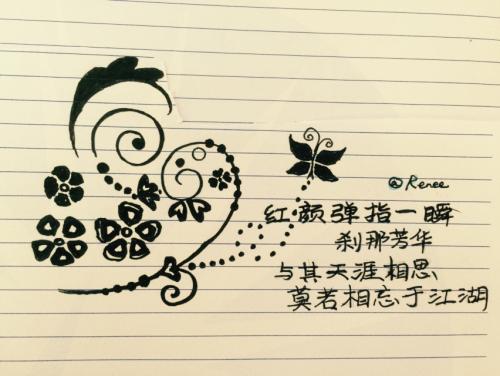 @Renee
红颜弹指一瞬
刹那芳华
与其天涯相思
莫若相忘于江湖